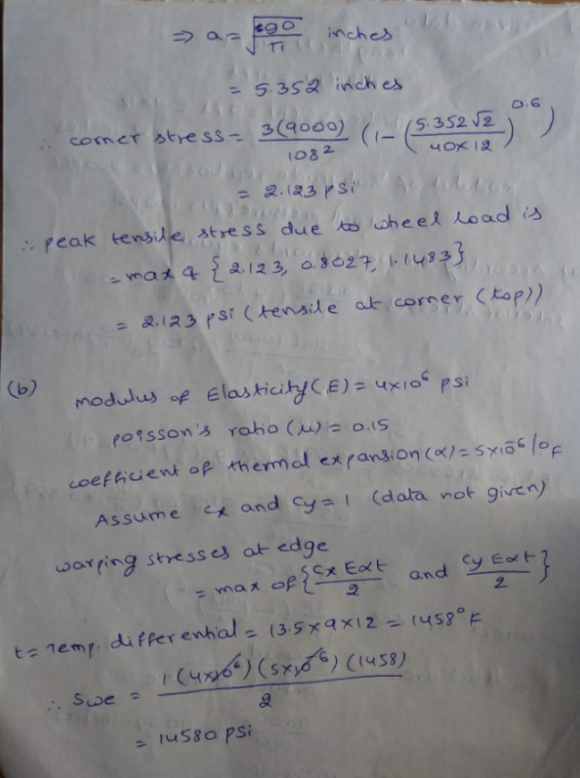 ⇒ a = √(90/π) inches
= 5.352 inches
∴ corner stress = 3(9000)/108² (1-(5.352√2/40×12)^0.6)
= 2.123 psi
∴ peak tensile stress due to wheel load is
= max of {2.123, 0.8027, 1.1483}
= 2.123 psi (tensile at corner (top))
(b) modulus of Elasticity(E) = 4×10⁶ psi
poisson's ratio (μ) = 0.15
coefficient of thermal expansion(α) = 5×10⁻⁶/°F
Assume Cx and Cy = 1 (data not given)
warping stresses at edge
= max of {Cx Eαt/2 and Cy Eαt/2}
t = Temp. differential = 13.5×9×12 = 1458°F
∴ Swe = 1(4×10⁶)(5×10⁻⁶)(1458)/2
= 14580 psi